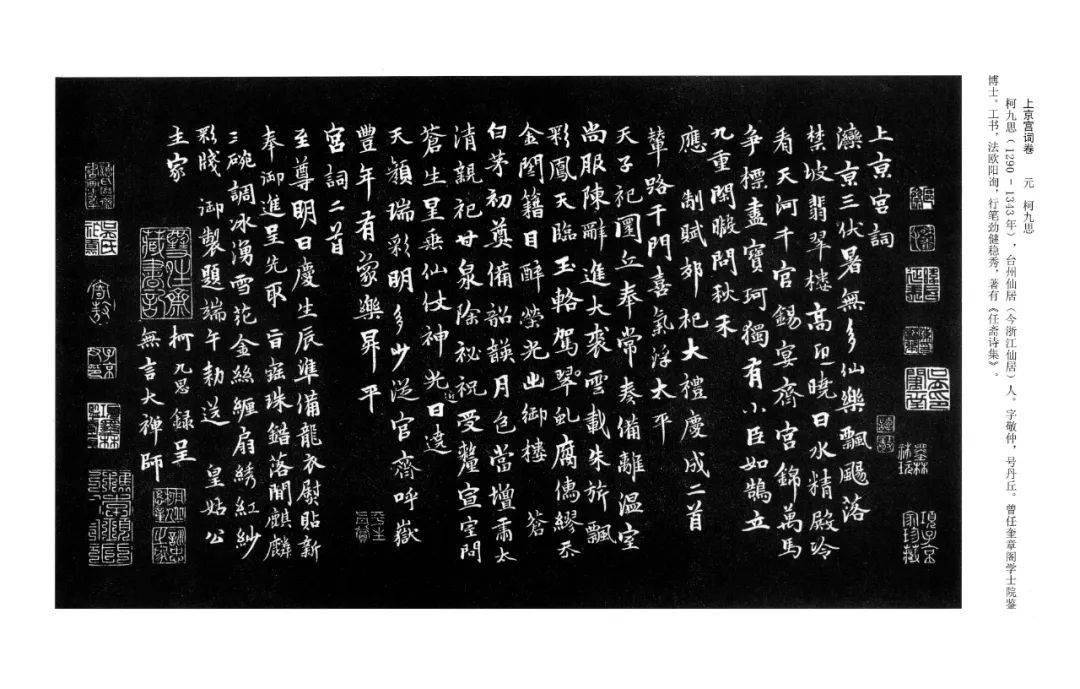 上京宫词卷　元　柯九思
柯九思（1290－1343年），台州仙居（今浙江仙居）人。字敬仲，号丹丘。曾任奎章阁学士院鉴
博士。工书，法欧阳询，行笔劲健稳秀，著有《任斋诗集》。
上京宮詞
灤京三伏暑無多仙樂飄颻落
禁坡翡翠樓高印曉日水精殿冷
看天河千官錫宴齊宮錦萬馬
爭標盡寶珂獨有小臣如鵠立
九重閑暇問秋禾
應制賦郊祀大禮慶成二首
輦路千門喜氣浮太平
天子祀圜丘奉常奏備離溫室
尚服陳辭進大裘雲載朱旂飄
彩鳳天臨玉輅駕翠虬腐儒繆忝
金閨籍目醉榮光出御樓　蒼
白茅初奠備韶頀月色當壇肅太
清親祀甘泉除祕祝受釐宣室問
蒼生星垂仙仗神光近日遶
天顏瑞彩明多少從官齊呼嶽
豐年有象樂昇平
宮詞二首
至尊明日慶生辰準備龍衣熨貼新
奉御進呈先取旨瑤珠錯落間麒麟
三碗調冰湧雪花金絲纏扇綉紅紗
彩牋御製題端午勅送皇姑公
主家
柯九思錄呈
無言大禪師